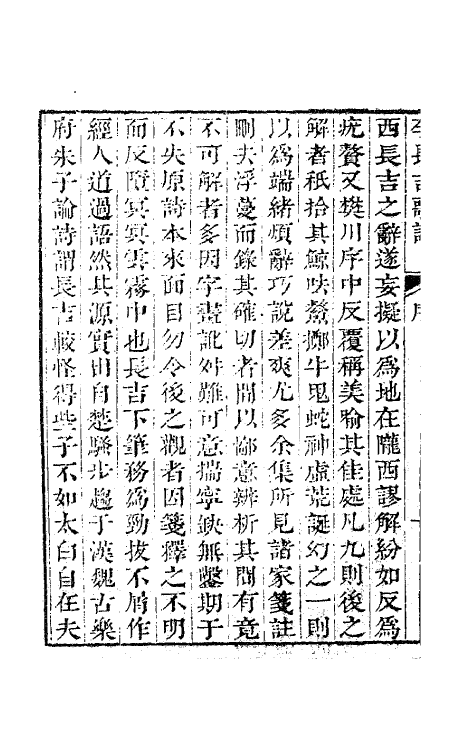 李長吉歌詩 序
西長吉之辭遂妄擬以為地在隴西謬解紛如反為
疣贅又樊川序中反覆稱美喻其佳處凡九則後之
解者秖拾其鯨呿鰲擲牛鬼蛇神虛荒誕幻之一則
以為端緒煩辭巧說差爽尤多余集所見諸家箋註
刪去浮蔓而錄其確切者間以鄙意辨析其間有竟
不可解者多因字畫訛舛難可意揣寧缺無鑿期于
不失原詩本來面目勿令後之觀者因箋釋之不明
而反墮冥冥雲霧中也長吉下筆務為勁拔不屑作
經人道過語然其源實出自楚騷步趨于漢魏古樂
府朱子論詩謂長吉較怪得些子不如太白自在夫